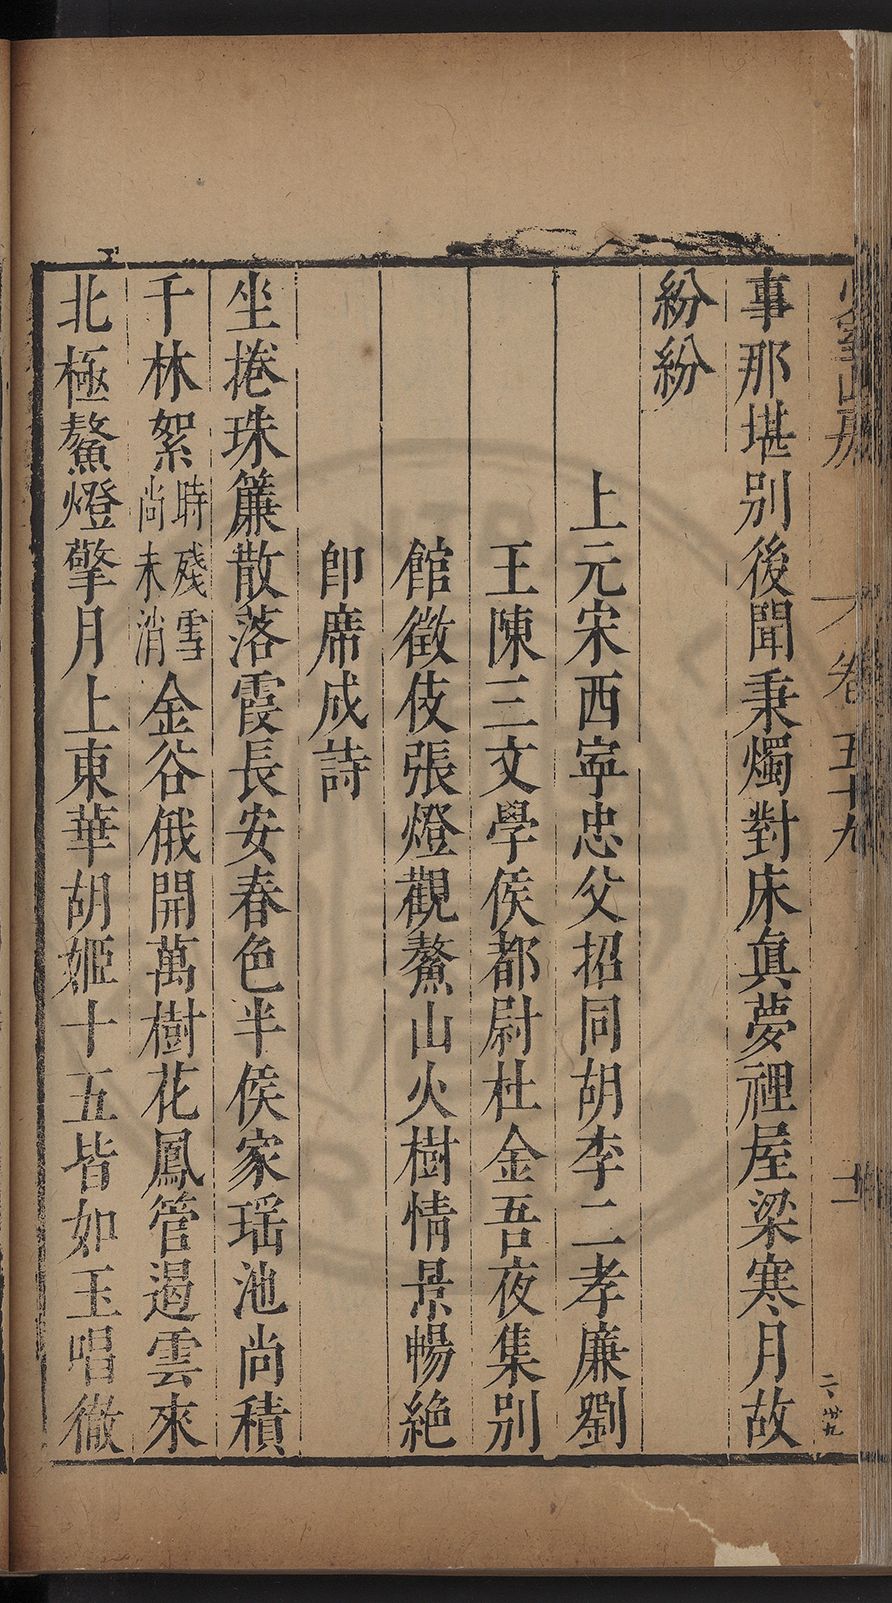 卷五十九
十一
事那堪別後聞秉燭對床真夢裡屋梁寒月故
紛紛
上元宋西寧忠父招同胡李二孝廉劉
王陳三文學侯都尉杜金吾夜集別
館徵伎張燈觀鰲山火樹情景暢絕
即席成詩
坐捲珠簾散落霞長安春色半侯家瑶池尚積
千林絮時殘雪尚未消金谷俄開萬樹花鳳管遏雲來
北極鰲燈擎月上東華胡姬十五皆如玉唱徹